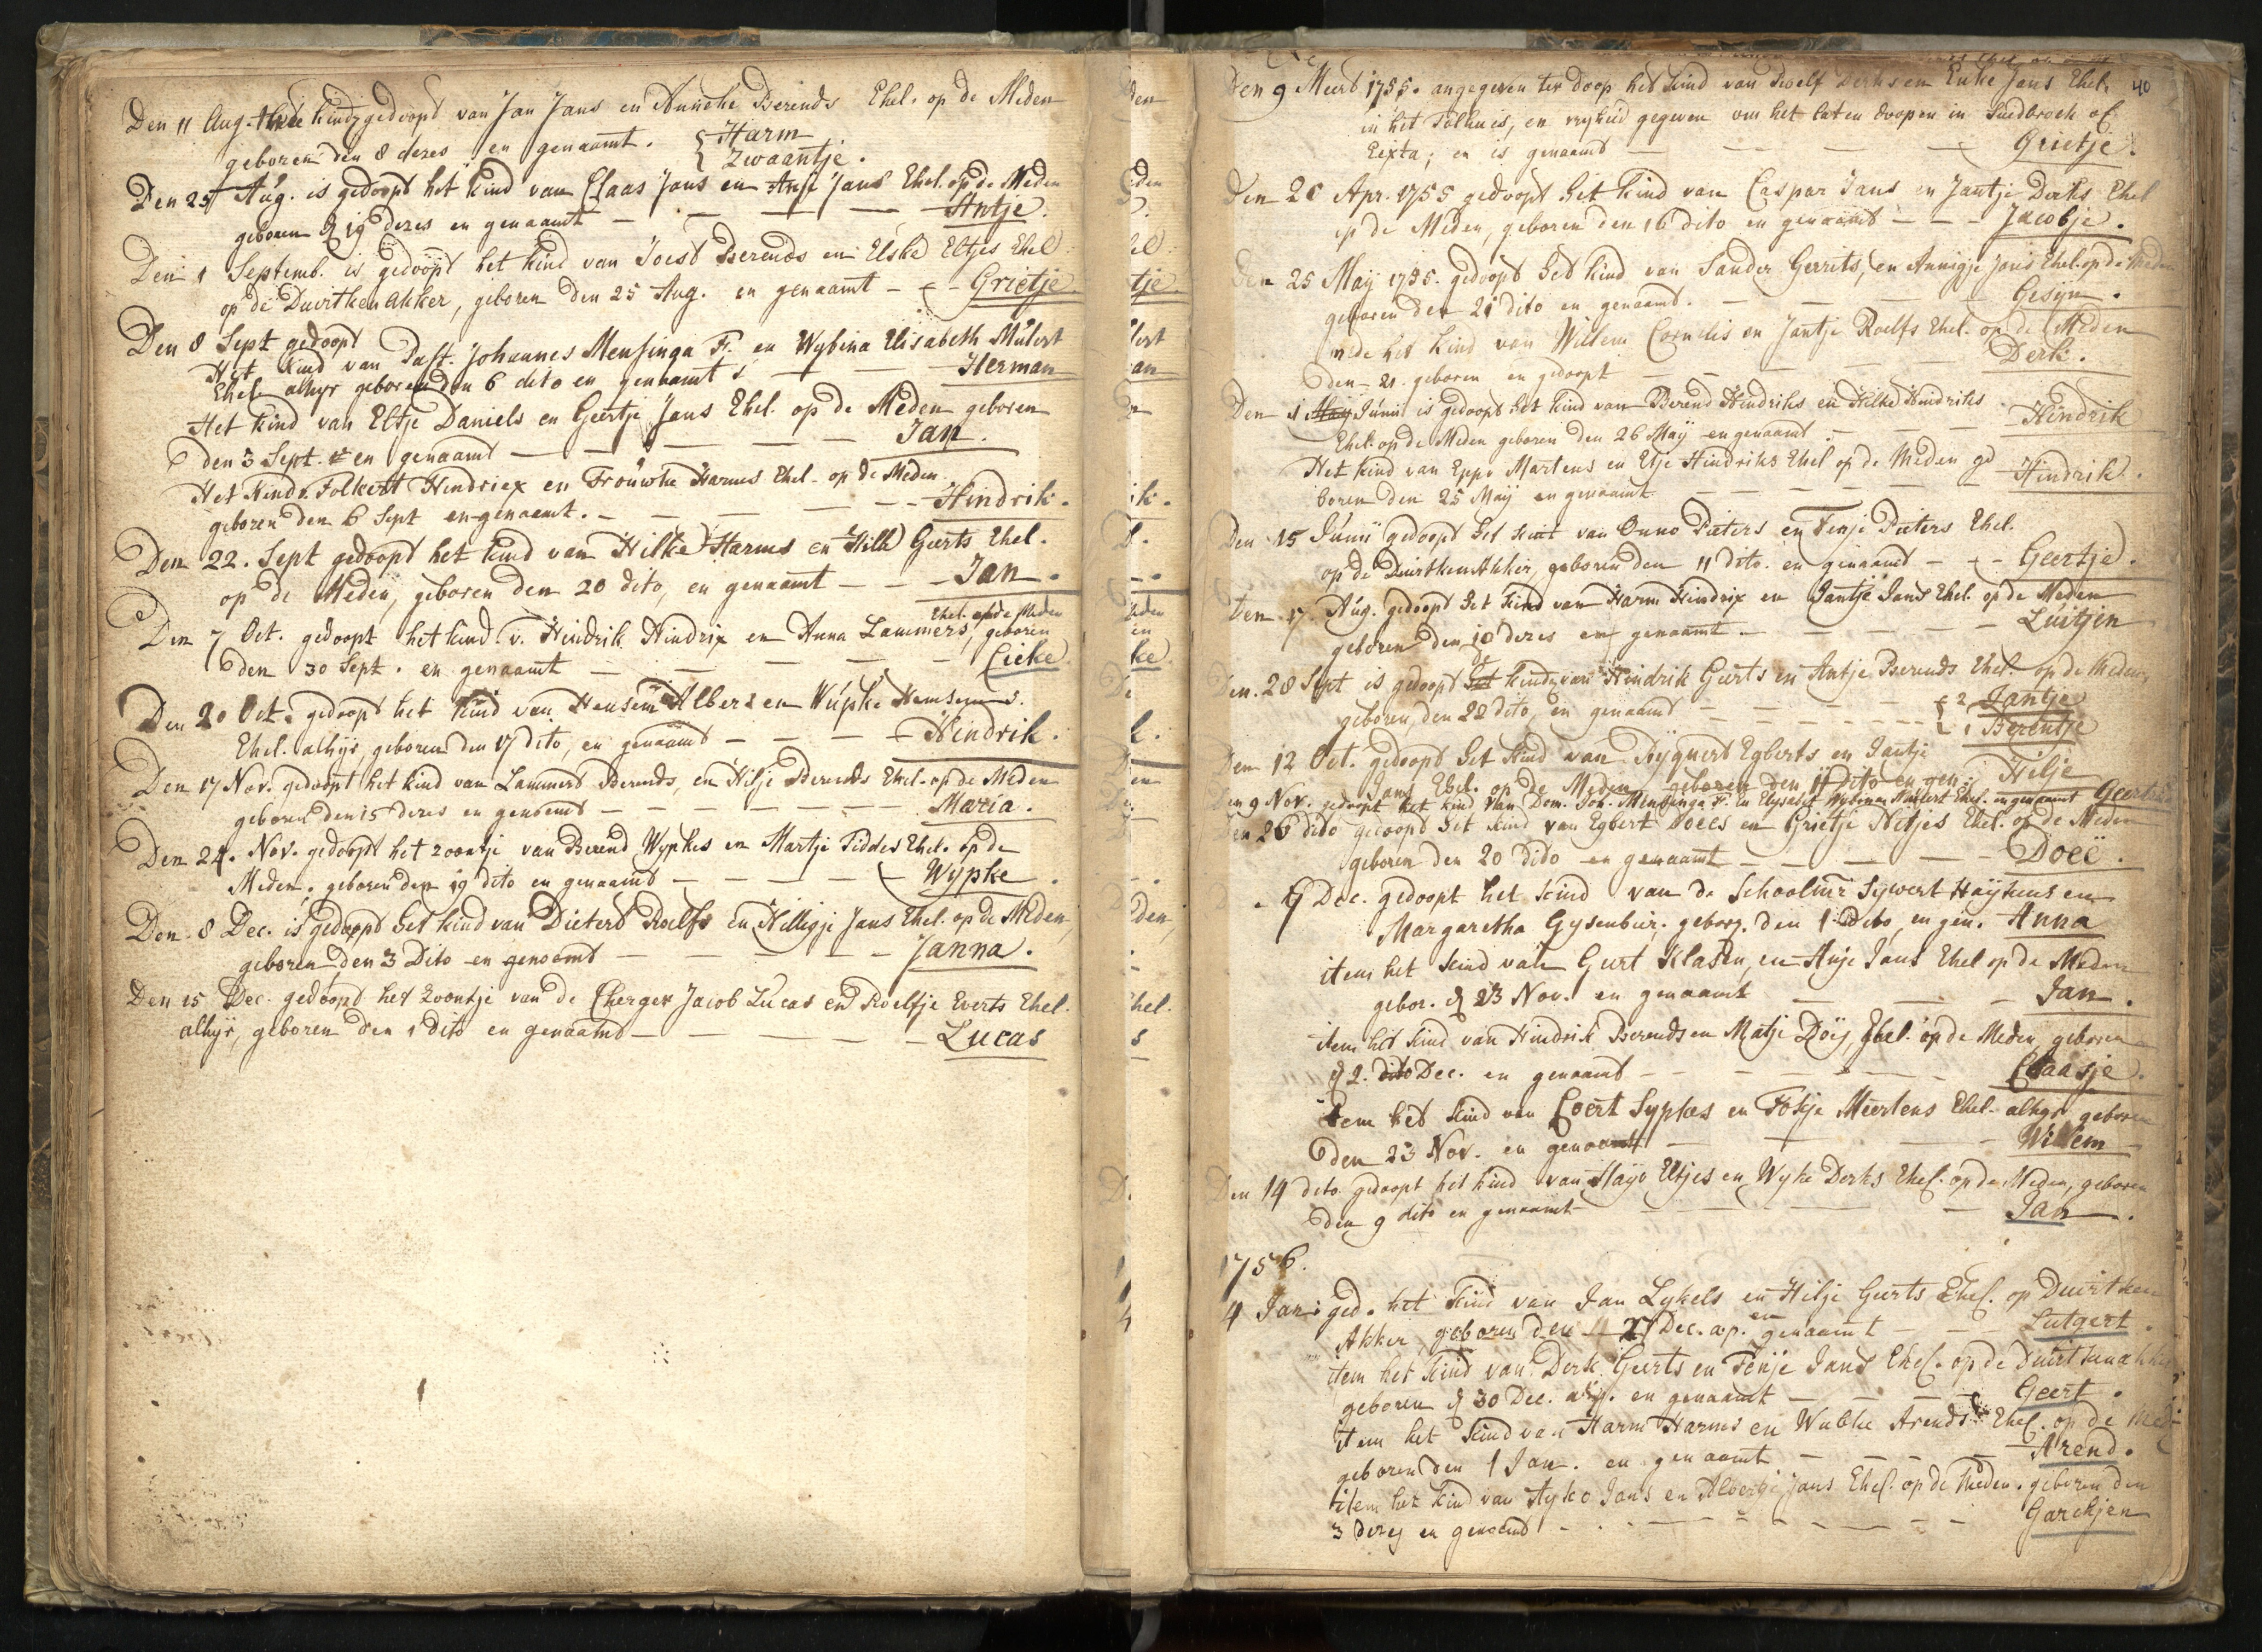 Den 11 Aug. twee kinders gedoopt van Jan Jans en Anneke Berends Ehel. op de Meden
geboren den 8 dezes en genaamt. { Harm
Zwaantje.
Den 25 Aug. is gedoopt het kind van Claas Jans en Antje Jans Ehel. op de Meden
geboren d 19 dezes en genaamt — — — — Antje.
Den 1 Septemb. is gedoopt het kind van Joest Berends en Elske Eltjes Ehel
op de Duirtken Akker, geboren den 25 Aug. en genaamt - - - Grietje
Den 8 Sept gedoopt
Het kind van Past. Johannes Mensinga F. en Wybina Elisabeth Mulert
Ehel. alhyr geboren den 6 dito en genaamt — — — Herman
Het kind van Eltje Daniels en Geertje Jans Ehel. op de Meden geboren
den 3 Sept. en genaamt — — — — Jan.
Het Kind v. Folkert Hendriex en Trouwke Harms Ehel. op de Meden
geboren den 6 Sept en genaemt. — — — — Hindrik.
Den 22. Sept gedoopt het kind van Hilke Harms en Hilke Geerts Ehel.
op de Meden, geboren den 20 dito, en genaamt — — — Jan.
Ehel. op de Meden
Den 7 Oct. gedoopt het kind v. Hindrik Hindrix en Anna Lammers, geboren
den 30 Sept. en genaamt — — — — Eieke.
Den 20 Oct. gedoopt het kind van Hensem Alberz en Wupke Hensems.
Ehel. alhyr, geboren den 17 dito, en genaamt — — — Hindrik.
Den 17 Nov. gedoopt het kind van Lammert Berends, en Hilje Berends Ehel. op de Meden
geboren den 15 dezes en genoemt — — — — Maria.
Den 24. Nov. gedoopt het zoontje van Berend Wypkes en Martje Fiddes Ehel. op de
Meden. geboren den 19 dito en genaamt — — — Wypke.
Den 8 Dec. is gedoopt het kind van Dietert Roelfs en Hilligje Jans Ehel. op de Meden,
geboren den 3 Dito en genoemt — — — — Janna.
Den 15 Dec. gedoopt het Zoontje van de Cherger Jacob Lucas en Roelfje Everts Ehel.
alhyr, geboren den 1 dito en genaamt — — — — Lucas
40
Den 9 Meert 1755. angegeven ter doop het kind van Roelf Derks en Enke Jans Ehel.
in het Tolhuis, en vryheid gegeven om het laten doopen in Suidbroek of
Eexta; en is genaamt — — — — Grietje.
Den 20 Apr. 1755 gedoopt het kind van Caspar Jans en Jantje Derks Ehel
op de Meden, geboren den 16 dito en genaamt — — — Jacobje.
Den 25 May 1755. gedoopt het kind van Sander Gerrits, en Annigje Jans Ehel. op de Meden
geboren den 21 dito en genaamt. — — — Gesijn.
mede het kind van Willem Cornelis en Jantje Roelfs Ehel. op de Meden
den 21. geboren en gedoopt — — — Derk.
Den 1 May Junii is gedoopt het kind van Berend Hindriks en Hilke Hindriks
Ehel. op de Meden geboren den 26 May en genaamt — — — Hindrik
Het kind van Eppe Martens en Etje Hindriks Ehel op de Meden ge
boren den 25 May en genaamt — — — Hindrik.
Den 15 Junii gedoopt het kint van Onno Pieters en Tenje Pieters Ehel.
op de Duirtken Akker, geboren den 11 dito. en genaamt — — — Geertje.
Den 17. Aug. gedoopt het kind van Harm Hindrix en Jantje Jans Ehel. op de Meden
geboren den 10 dezes en genaamt. — — — Luitjen
Den 28 Sept is gedoopt het kinder van Hindrik Geerts en Antje Berends Ehel. op de Meden
geboren, den 22 dito, en genaamt — — — { 2 Jantje
1 Berentje
Den 12 Oct. gedoopt het kind van Ryguert Egberts en Jantje
Jans Ehel. op de Meden geboren den 11 dito en gen. Hilje
Den 9 Nov. gedoopt het kind van Dom. Joh. Mensinga F. en Elysabet Wybina Mulert Ehel. en genaamt Geertrui
Den 26 dito gedoopt het kind van Egbert Doees en Grietje Netjes Ehel. op de Meden
geboren den 20 dito en genaamt — — — Doeë.
7 Dec. gedoopt het kind van de Schoolmr Sywert Haykens en
Margaretha Gysenbier. geborz. den 1 Dito, en gen. Anna
item het kind van Geert Klasen, en Anje Jans Ehel op de Meden
gebor. d 23 Nov. en genaamt — — — Jan.
item het kind van Hindrik Berends en Matje Doej, Ehel. op de Meden, geboren
d 2. dito Dec. en genaamt — — — Claasje.
item het kind van Coert Sypkes en Fokje Meertens Ehel. alhyr geboren
den 23 Nov. en genaamt — — — Willem
Den 14 dito gedoopt het kind van Hayo Eltjes en Wyke Derks Ehel. op de Meden, geboren
den 9 dito en genaamt — — — Jan.
1756.
4 Jan: ged. het kind van Jan Lykels en Hilje Geerts Ehel. op Duirtken
Akker, geboren den 27 Dec. a.p. en genaamt — — — Lutgert.
item het kind van Derk Geerts en Fenje Jans Ehel. op de Duirtkenakker
geboren d 30 Dec. a.p. en genaamt — — — Geert.
item het kind van Harm Harms en Wubke Arends Ehel. op de Meden
geboren den 1 Jan. en genaamt — — — Arend.
item het kind van Ayko Jans en Albertje Jans Ehel. op de Meden. geboren den
3 dezes en genoemt — — — Garchjen